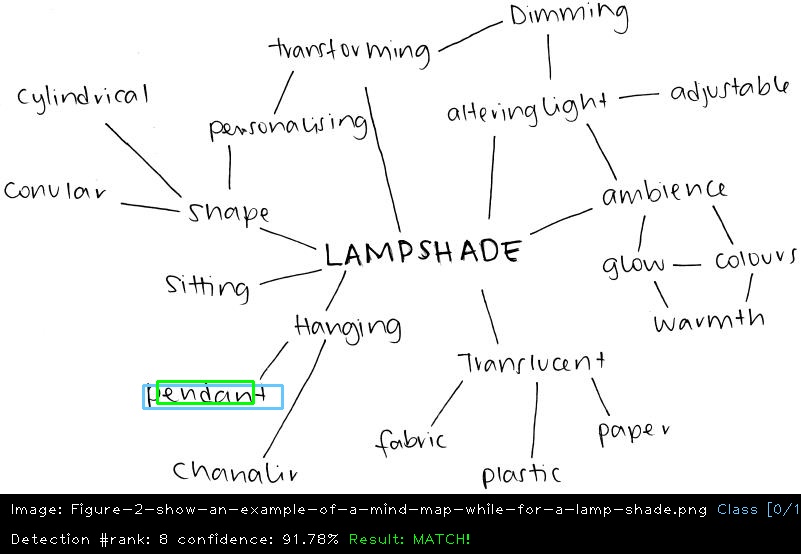 Dimming
transforming
cylindrical
alteringlight
adjustable
personalising
conular
shape
ambience
LAMPSHADE
glow
colours
sitting
Hanging
warmth
Translucent
pendant
fabric
paper
chanalir
plastic
Image: Figure-2-show-an-example-of-a-mind-map-while-for-a-lamp-shade.png Class [0/1
Detection #rank: 8 confidence: 91.78% Result: MATCH!